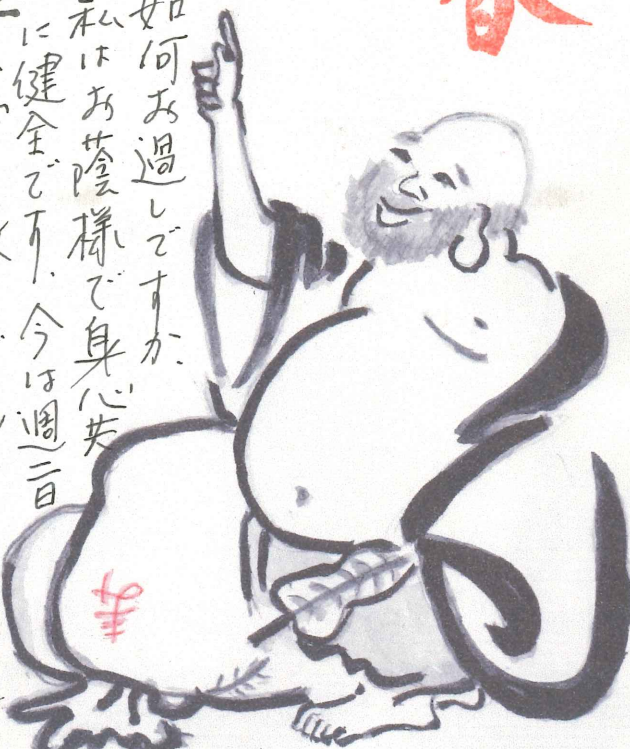 春
如何お過しですか、
私はお蔭様で身心共
に健全です、今は週二日
寿